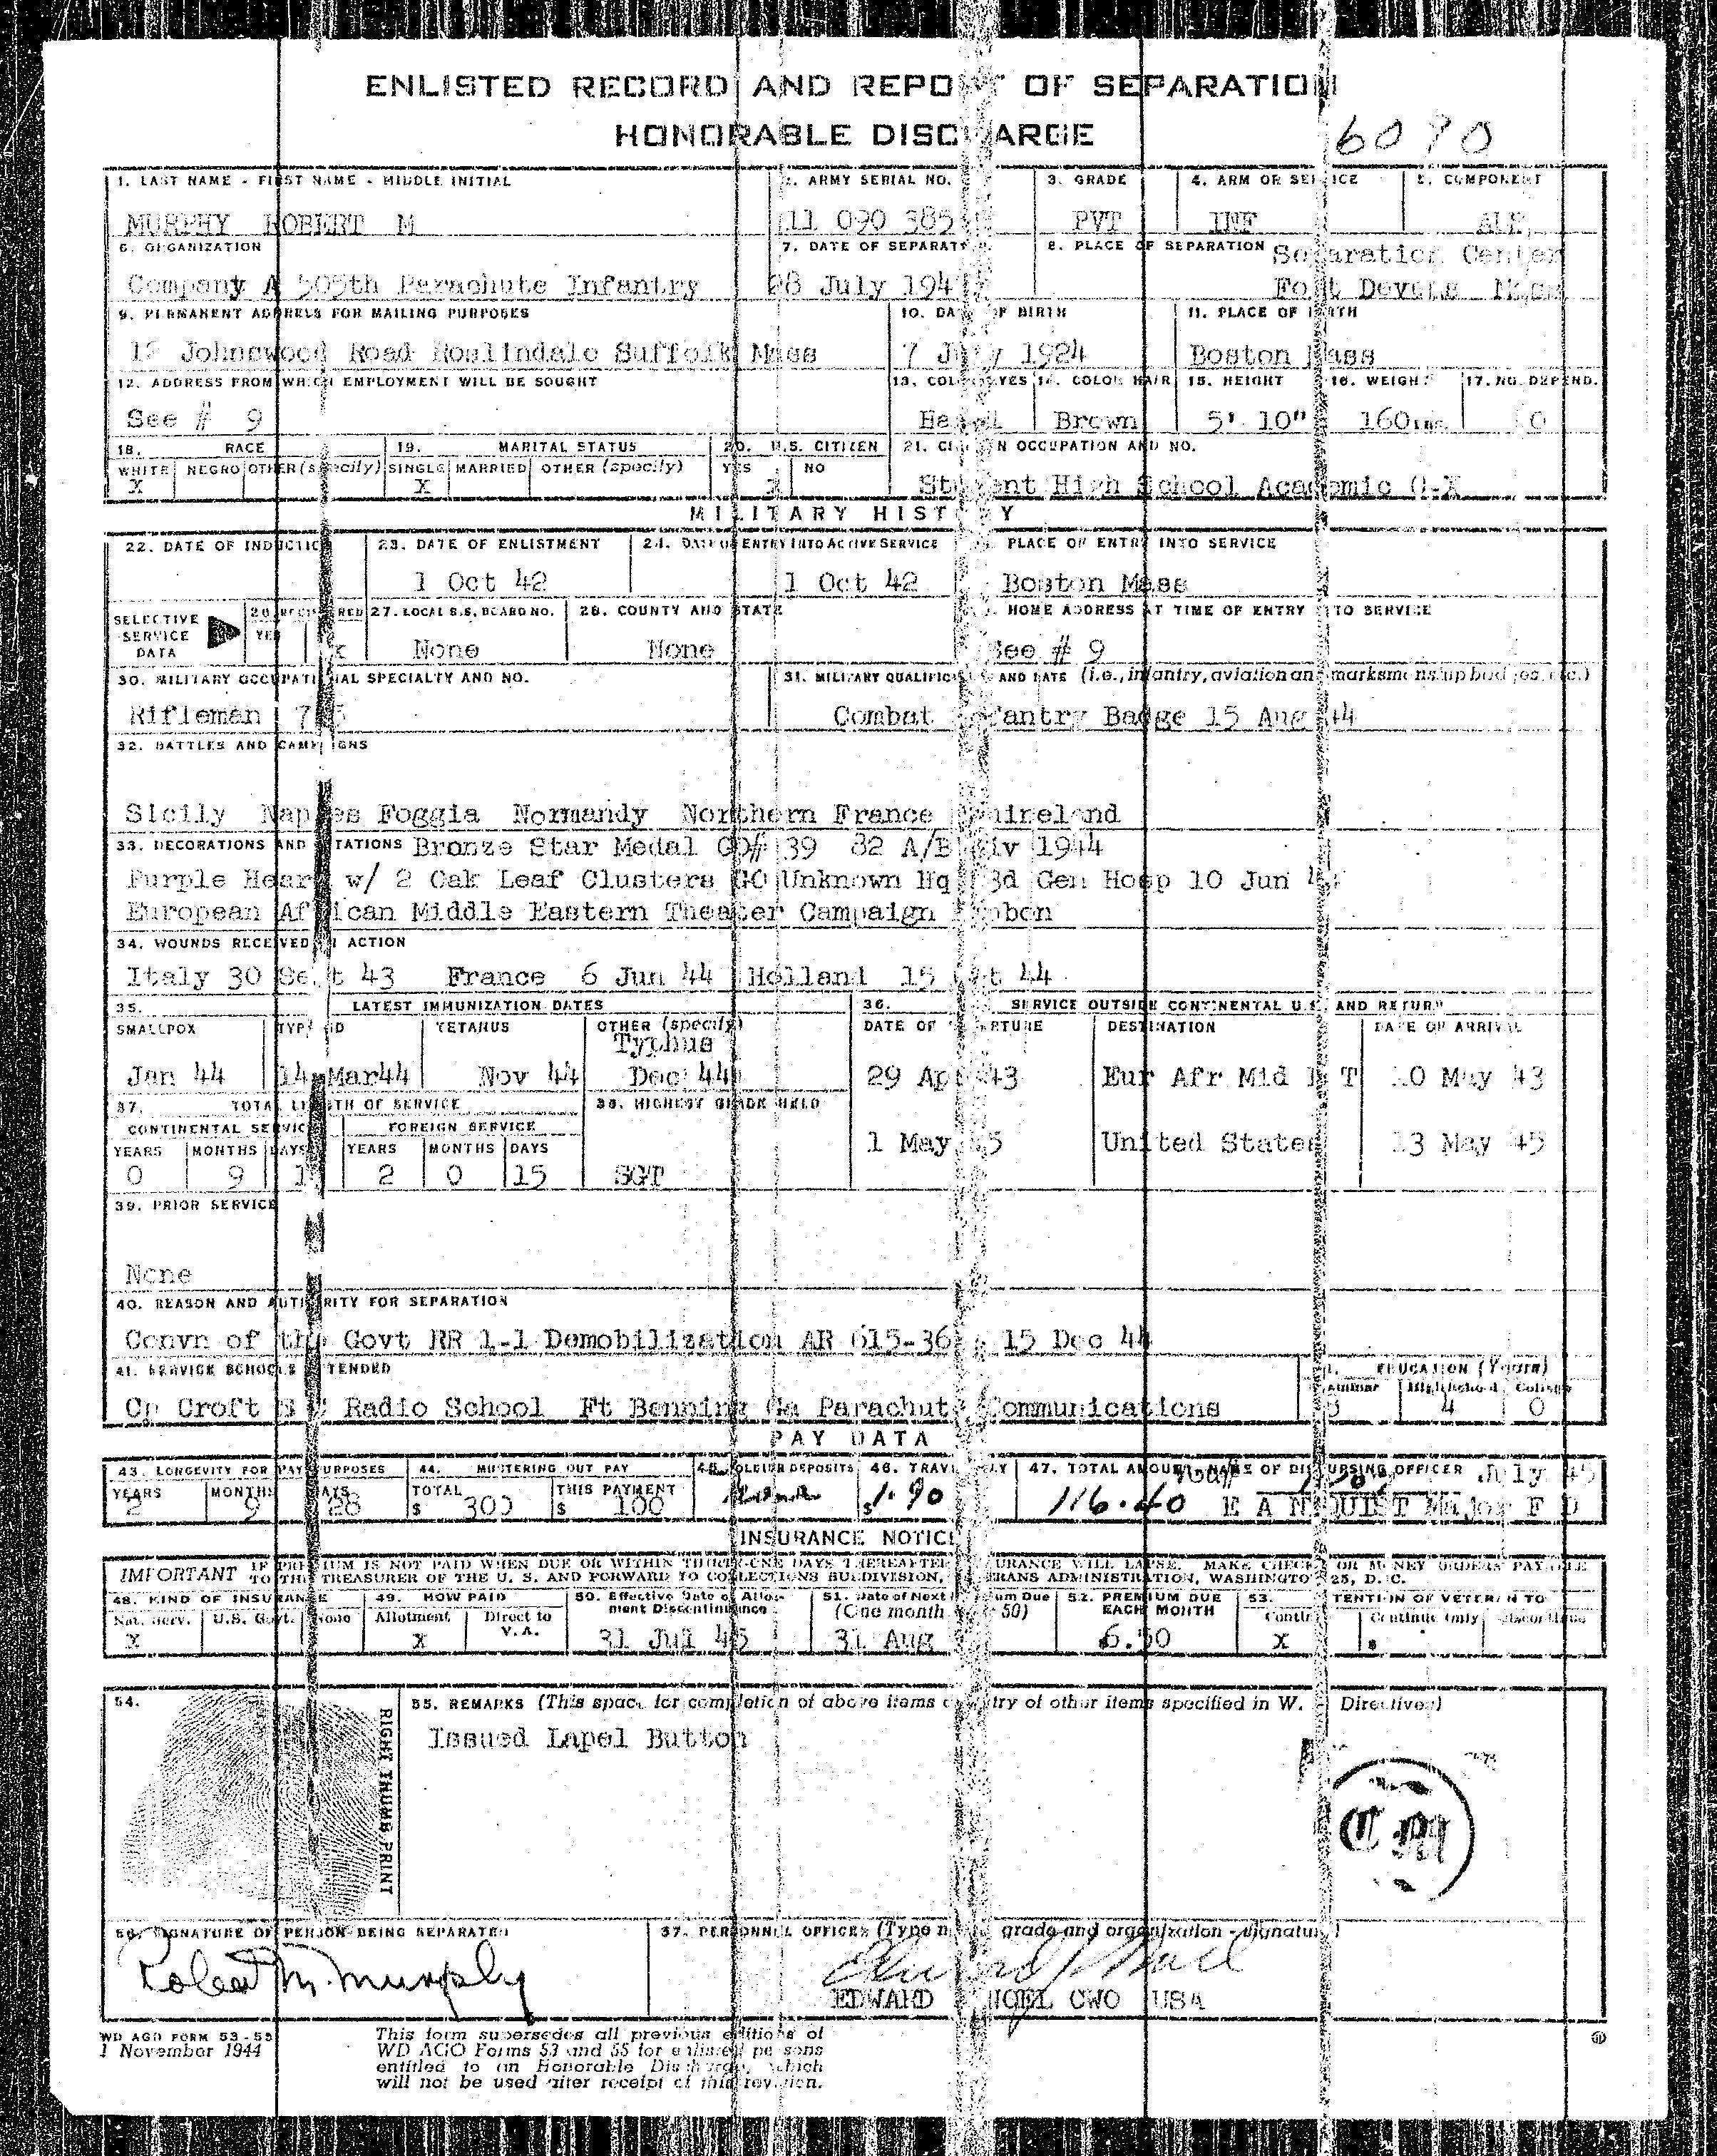 ENLISTED RECORD AND REPORT OF SEPARATION
HONORABLE DISCHARGE
6090
1. LAST NAME - FIRST NAME - MIDDLE INITIAL
2. ARMY SERIAL NO.
3. GRADE
4. ARM OR SERVICE
5. COMPONENT
MURPHY ROBERT M
11 090 385
PVT
INF
6. ORGANIZATION
7. DATE OF SEPARATION
8. PLACE OF SEPARATION Separation Center
Company A 505th Parachute Infantry
28 July 194
Fort Devens Mass
9. PERMANENT ADDRESS FOR MAILING PURPOSES
10. DATE OF BIRTH
11. PLACE OF BIRTH
Johnswood Road Roslindale Suffolk Mass
7 July 1924
Boston Mass
12. ADDRESS FROM WHICH EMPLOYMENT WILL BE SOUGHT
13. COLOR EYES
14. COLOR HAIR
15. HEIGHT
16. WEIGHT
17. NO. DEPEND.
See # 9
Hazel
Brown
5' 10"
160 lbs.
0
18. RACE
19. MARITAL STATUS
20. U.S. CITIZEN
21. CIVILIAN OCCUPATION AND NO.
WHITE NEGRO OTHER (specify) SINGLE MARRIED OTHER (specify) YES NO
X X X
Student High School Academic 0-X
MILITARY HISTORY
22. DATE OF INDUCTION
23. DATE OF ENLISTMENT
24. DATE OF ENTRY INTO ACTIVE SERVICE
25. PLACE OF ENTRY INTO SERVICE
1 Oct 42
1 Oct 42
Boston Mass
SELECTIVE SERVICE DATA
26. REGISTERED
27. LOCAL S.S. BOARD NO.
28. COUNTY AND STATE
29. HOME ADDRESS AT TIME OF ENTRY INTO SERVICE
YES
x
None
None
See # 9
30. MILITARY OCCUPATIONAL SPECIALTY AND NO.
31. MILITARY QUALIFICATION AND DATE (i.e., infantry, aviation and marksmanship badges, etc.)
Rifleman 745
Combat Infantry Badge 15 Aug 44
32. BATTLES AND CAMPAIGNS
Sicily Naples Foggia Normandy Northern France Rhineland
33. DECORATIONS AND CITATIONS Bronze Star Medal GO# 39 82 A/B Div 1944
Purple Heart w/ 2 Oak Leaf Clusters GO Unknown Hq 3d Gen Hosp 10 Jun
European African Middle Eastern Theater Campaign Ribbon
34. WOUNDS RECEIVED IN ACTION
Italy 30 Sept 43 France 6 Jun 44 Holland 15 Oct 44
35. LATEST IMMUNIZATION DATES
36. SERVICE OUTSIDE CONTINENTAL U.S. AND RETURN
SMALLPOX
TYPHOID
TETANUS
OTHER (specify)
DATE OF DEPARTURE
DESTINATION
DATE OF ARRIVAL
Typhus
Jan 44
14 Mar44
Nov 44
Dec 44
29 Apr 43
Eur Afr Mid E T
10 May 43
37. TOTAL LENGTH OF SERVICE
38. HIGHEST GRADE HELD
CONTINENTAL SERVICE
FOREIGN SERVICE
1 May 45
United States
13 May 45
YEARS MONTHS DAYS YEARS MONTHS DAYS
0 9 2 0 15
SGT
39. PRIOR SERVICE
None
40. REASON AND AUTHORITY FOR SEPARATION
Convn of the Govt RR 1-1 Demobilization AR 615-36 15 Dec 44
41. SERVICE SCHOOLS ATTENDED
EDUCATION (Years)
Grammar High School College
Cp Croft S C Radio School Ft Benning Ga Parachute Communications
8 4 0
PAY DATA
43. LONGEVITY FOR PAY PURPOSES
44. MUSTERING OUT PAY
45. SOLDIER DEPOSITS
46. TRAVEL PAY
47. TOTAL AMOUNT, NAME OF DISBURSING OFFICER
July 45
YEARS MONTHS DAYS
TOTAL
THIS PAYMENT
2 9 28
$ 300
$ 100
None
$ 1.90
116.40
E A NQUIST Major F D
INSURANCE NOTICE
IMPORTANT IF PREMIUM IS NOT PAID WHEN DUE OR WITHIN THIRTY-ONE DAYS THEREAFTER, INSURANCE WILL LAPSE. MAKE CHECKS OR MONEY ORDERS PAYABLE
TO THE TREASURER OF THE U. S. AND FORWARD TO COLLECTIONS SUBDIVISION, VETERANS ADMINISTRATION, WASHINGTON 25, D. C.
48. KIND OF INSURANCE
49. HOW PAID
50. Effective Date of Allotment Discontinuance
51. Date of Next Premium Due (One month after 50)
52. PREMIUM DUE EACH MONTH
53. INTENTION OF VETERAN TO
Nat. Serv. U.S. Govt. None
Allotment
Direct to V.A.
Continue
Continue Only
Discontinue
X
X
31 Jul 45
31 Aug
6.50
X
54.
RIGHT THUMB PRINT
55. REMARKS (This space for completion of above items or entry of other items specified in W. D. Directives)
Issued Lapel Button
C M
56. SIGNATURE OF PERSON BEING SEPARATED
57. PERSONNEL OFFICER (Type name, grade and organization - signature)
Robert M. Murphy
EDWARD NOEL CWO USA
WD AGO FORM 53-55
1 November 1944
This form supersedes all previous editions of
WD AGO Forms 53 and 55 for enlisted persons
entitled to an Honorable Discharge, which
will not be used after receipt of this revision.